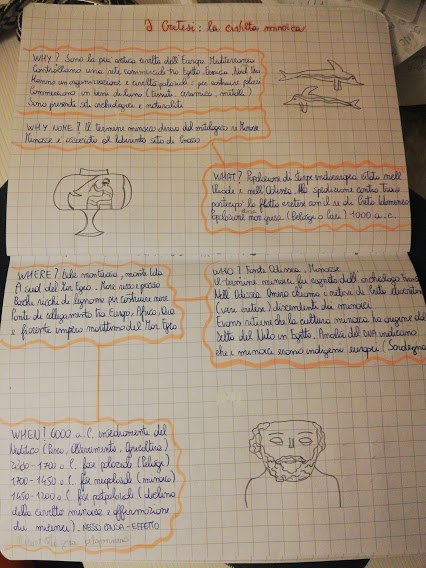 I Cretesi: la civiltà minoica
WHY? Sono la più antica civiltà dell'Europa Mediterranea
Controllano una rete commerciale tra Egitto, Fenicia, Nord
Hanno un'organizzazione e civiltà palaziale: per costruire palazzi
Commerciano in beni di lusso (tessuti, ceramica, metalli)
Sono presenti siti archeologici e naturalisti
WHY NOME? Il termine minoico deriva dal mitologico re Minosse
Minosse è associato al labirinto sito di Cnosso
WHAT? Popolazione di stirpe indoeuropea citata nell'
Iliade e nell'Odissea. Alla spedizione contro Troia
partecipò la flotta cretese con il re di Creta Idomeneo
Popolazione non greca (Pelasgi o Cari) 1000 a.c.
WHERE? Isola montuosa, monte Ida
A sud del Mar Egeo. Mare
boschi ricchi di legname per costruire navi
Ponte di collegamento tra Europa, Africa, Asia
e fiorente impero marittimo del Mar Egeo
WHO? Fonti Odissea, Minosse
Il termine minoico fu coniato dall'archeologo
Nell'Odissea Omero chiama i nativi di Creta
(veri cretesi) discendenti dei minoici
Evans ritiene che la cultura minoica ha origine dal
Delta del Nilo in Egitto. Analisi del DNA indicano
che i minoici erano indigeni europei (Sardegna
WHEN? 6000 a.C. insediamento del
Neolitico (Pesca, Allevamento, Agricoltura)
- 1700 a.C. fase palaziale (Pelasgi)
1700 - 1450 a.C. fase neopalaziale (minoica)
1450 - 1200 a.C. fase postpalaziale (declino
della civiltà minoica e affermazione
dei micenei). NESSO CAUSA-EFFETTO